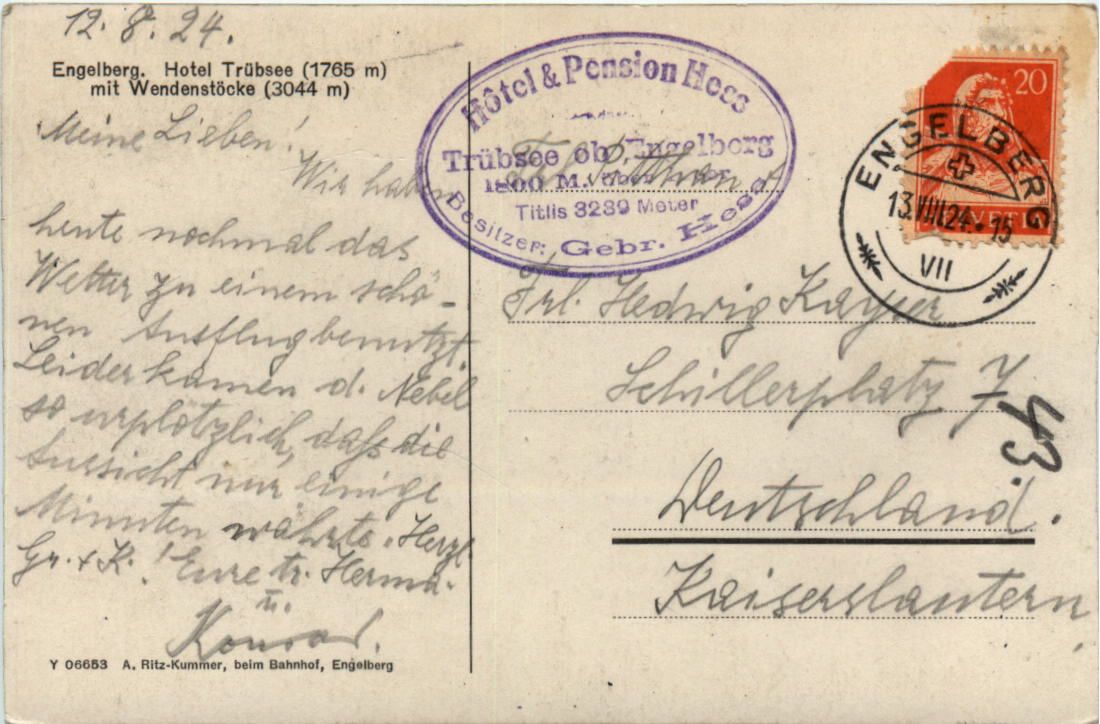 12. 8. 24.
Engelberg. Hotel Trübsee (1765 m)
mit Wendenstöcke (3044 m)
Meine Lieben!
Wir haben
heute nochmal das
Wetter zu einem schö-
nen Ausflug benutzt.
Leider kamen d. Nebel
so urplötzlich, daß die
Aussicht nur einige
Minuten währte. Herzl
Gr. + K.! Eure tr. Herma.
u.
Konrad.
Y 06653 A. Ritz-Kummer, beim Bahnhof, Engelberg
Hôtel & Pension Hess
Trübsee ob Engelberg
1800 M. über Meer
Titlis 3239 Meter
Besitzer: Gebr. Hess
20
HELVETIA
ENGELBERG
13.VIII.24.15
VII
Frl. Hedwig Kayser
Schillerplatz 7
43.
Deutschland.
Kaiserslautern